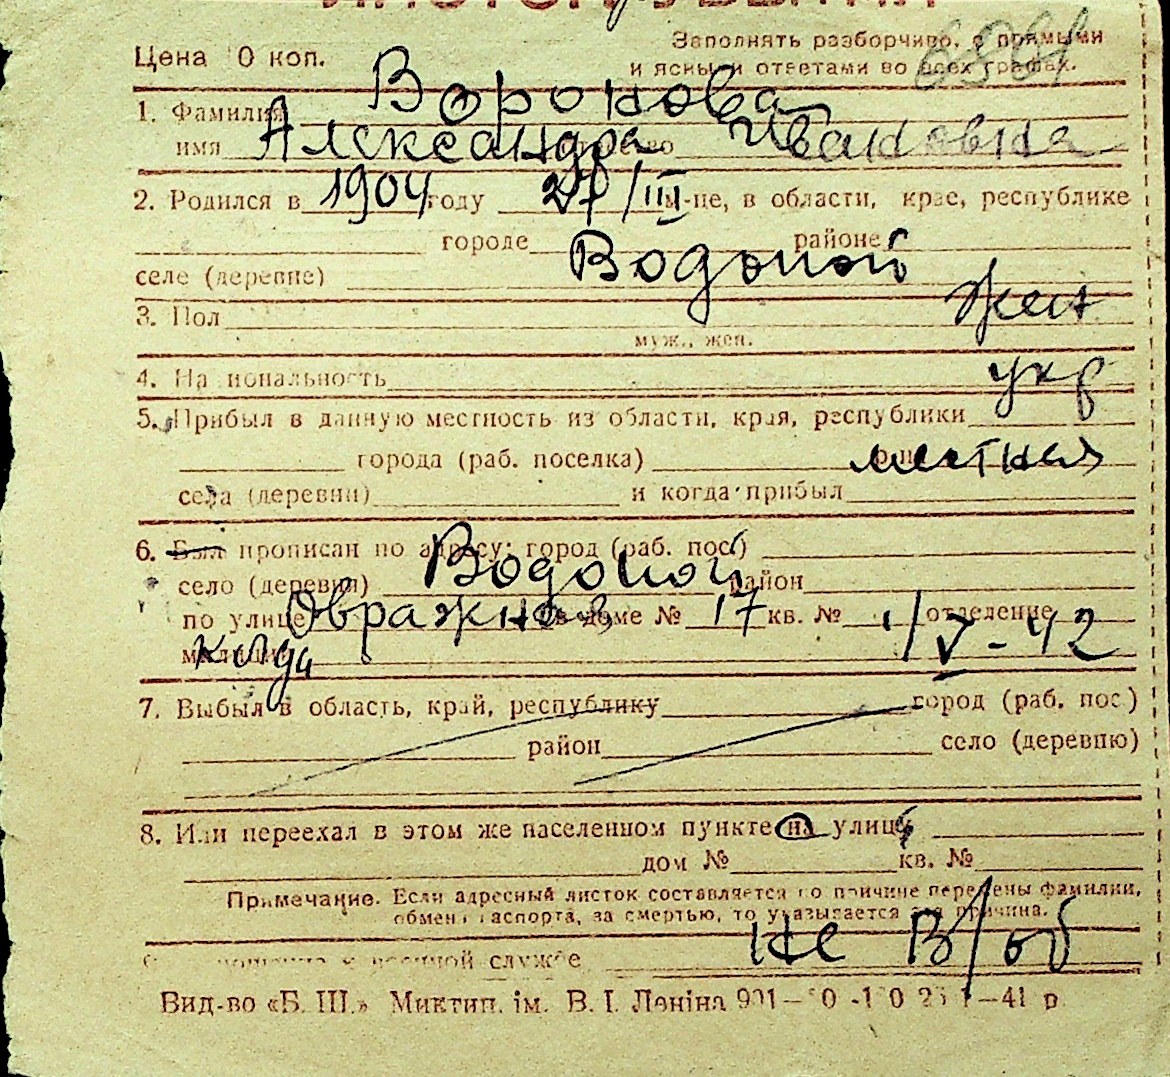 ЛИСТОК УБЫТИЯ
Цена 10 коп.
Заполнять разборчиво, с прямыми
и ясными ответами во всех графах.
1. Фамилия Воронова
имя Александра отчество Ивановна
2. Родился в 1904 году 27/III м-це, в области, крае, республике
городе районе
селе (деревне) Водопой
3. Пол жен
муж., жен.
4. Национальность укр
5. Прибыл в данную местность из области, края, республики
города (раб. поселка) местная
села (деревни) и когда прибыл
6. Был прописан по адресу: город (раб. пос.)
село (деревня) Водопой район
по улице Овражная в доме № 17 кв. № отделение
милиции когда 1/V-42
7. Выбыл в область, край, республику город (раб. пос.)
район село (деревню)
8. Или переехал в этом же населенном пункте на улицу
дом № кв. №
Примечание. Если адресный листок составляется по причине перемены фамилии,
обмена паспорта, за смертью, то указывается эта причина.
отношение к военной службе не в/об
Вид-во «Б. Ш.» Миктип. ім. В. І. Леніна